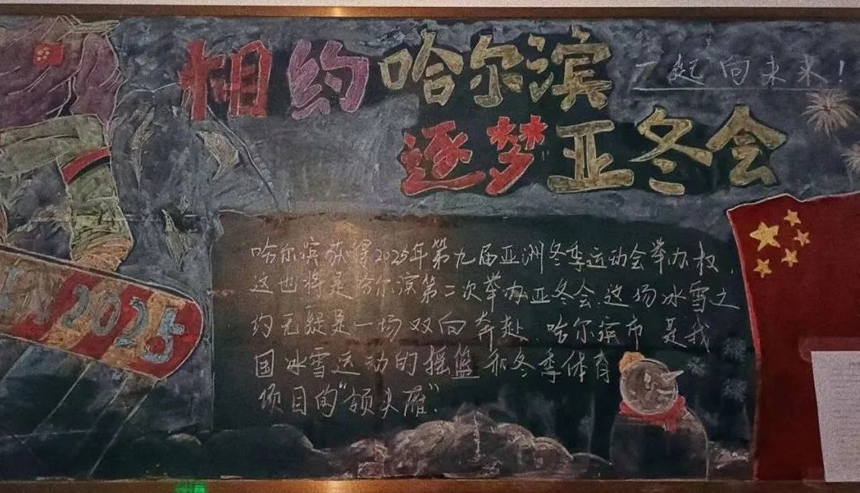 相约哈尔滨
一起向未来！
逐梦亚冬会
哈尔滨获得2025年第九届亚洲冬季运动会举办权，
这也将是哈尔滨第二次举办亚冬会.这场冰雪之
约无疑是一场双向奔赴.哈尔滨市是我
国冰雪运动的摇篮和冬季体育
项目的“领头雁”.
2025